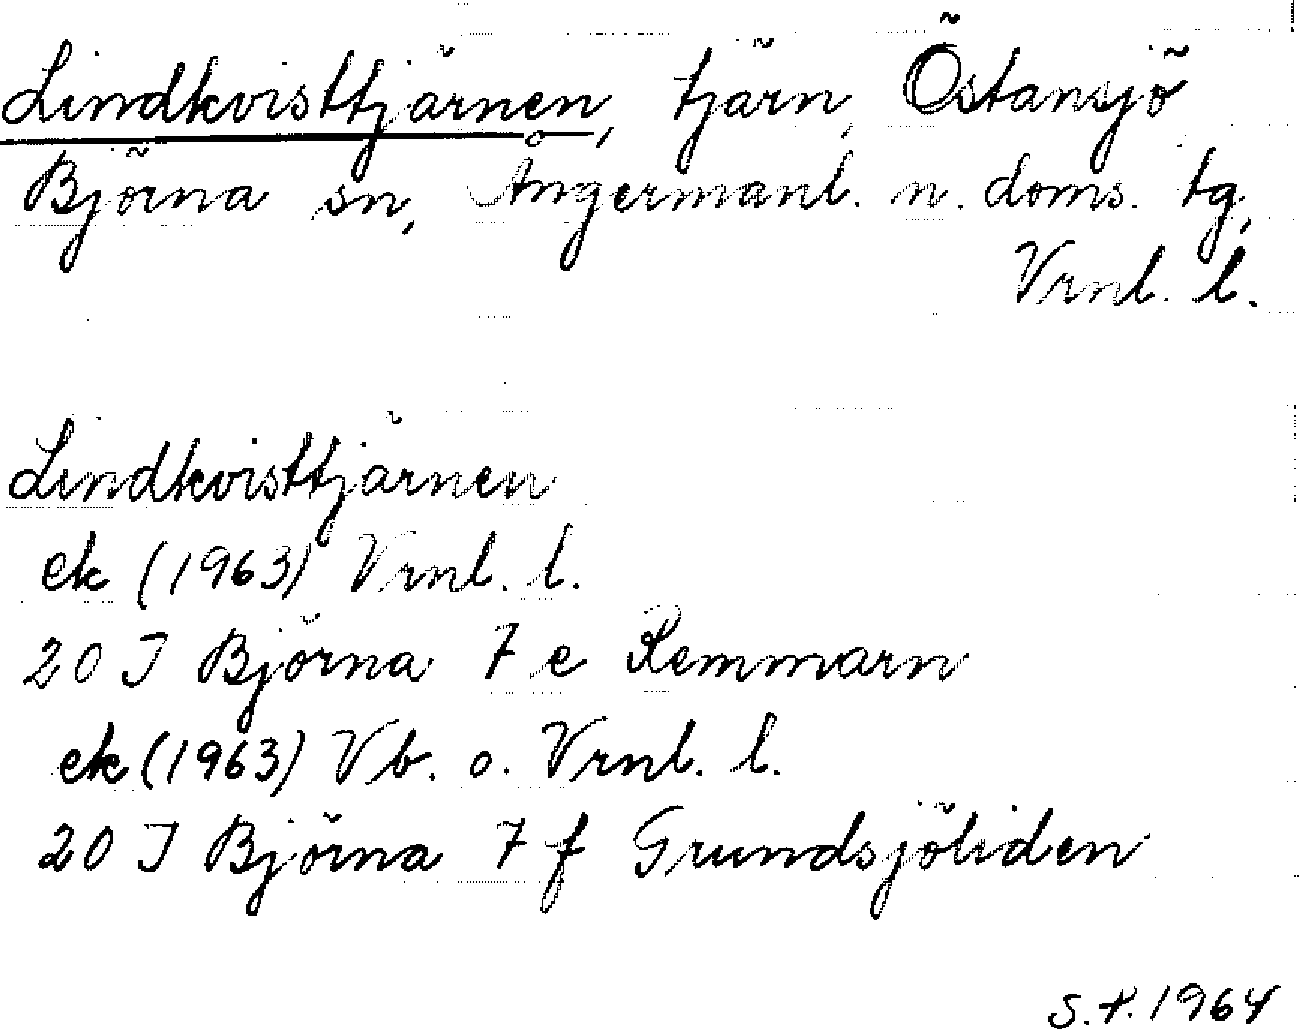 Lindkvisttjärnen, tjärn, Östansjö
Björna sn, Ångermanl. n. doms. tg,
Vrnl. l.
Lindkvisttjärnen
ek (1963) Vrnl. l.
20 J Björna 7 e Remmarn
ek (1963) Vb. o. Vrnl. l.
20 J Björna 7 f Grundsjöliden
S.P. 1964